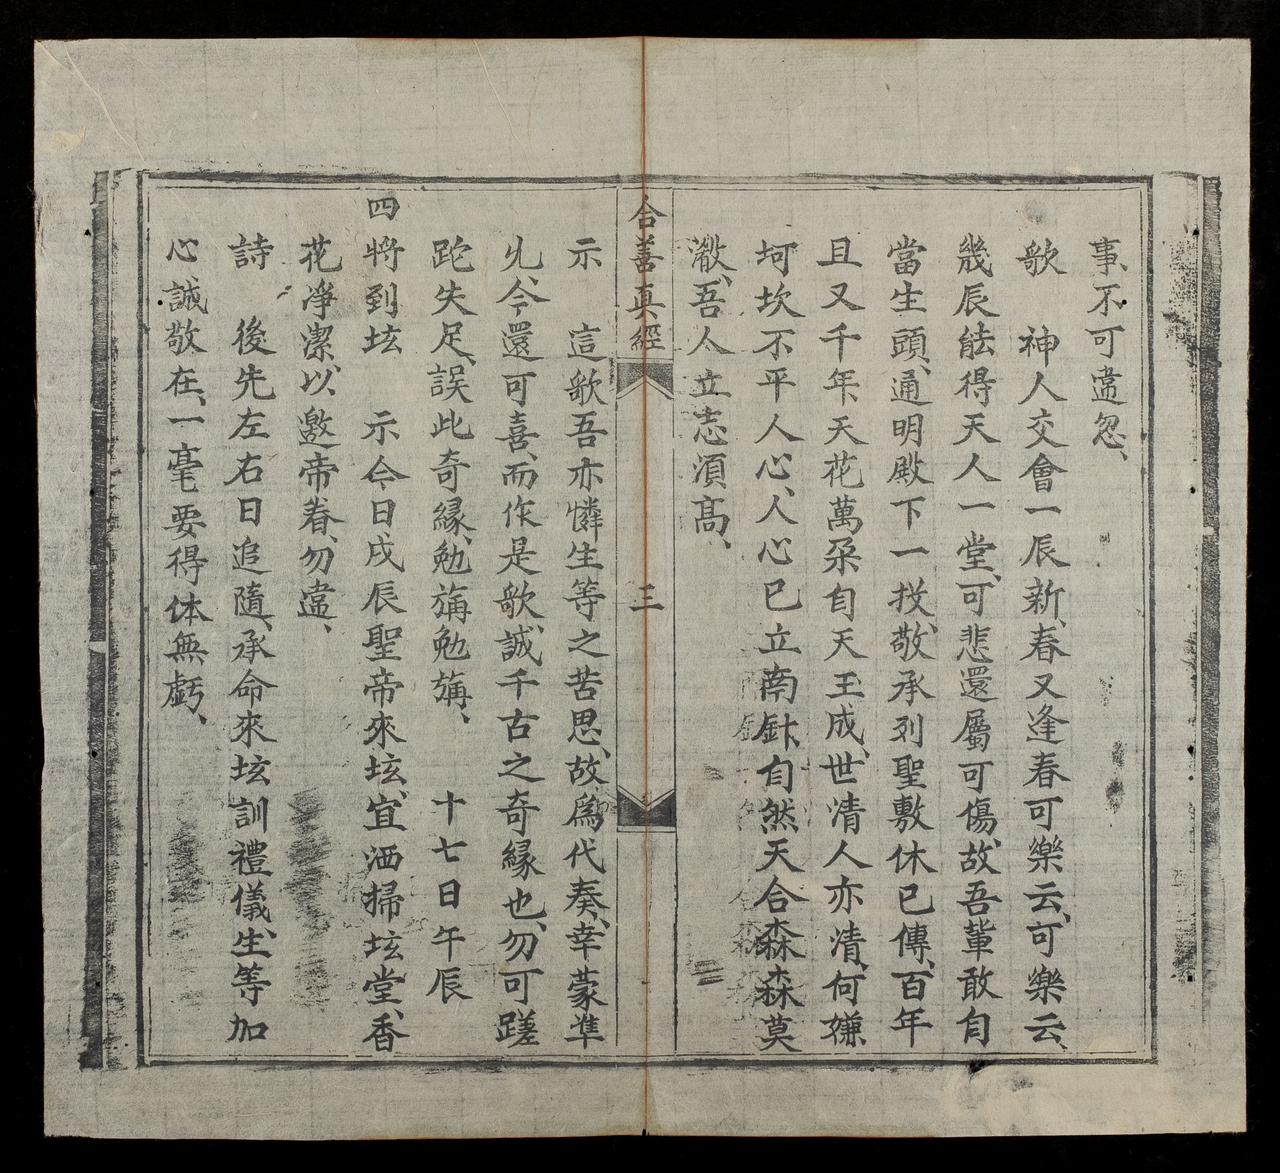 事、不可𡫶忽、
歌　神人交會一辰新、春又逢春可樂云、可樂云、
幾辰能得天人一堂、可悲還屬可傷、故吾輩敢自
當生頭、通明殿下一投、敬承列聖敷休已傳、百年
且又千年、天花萬朶自天王成、世清人亦清、何嫌
坷坎不平人心、人心已立南針、自然天合森森莫
澈、吾人立志須高、
合善真經
三
示　這歌吾亦憐生等之苦思、故爲代奏、幸蒙準
允、今還可喜、而作是歌、誠千古之奇緣也、勿可蹉
跎失足、誤此奇緣、勉旃勉旃、　十七日午辰
四將到坛　示今日戌辰聖帝來坛、宜洒掃坛堂、香
花凈潔、以邀帝眷、勿𡫶、
詩　後先左右日追隨、承命來坛訓禮儀、生等加
心誠敬在、一毫要得体無虧、